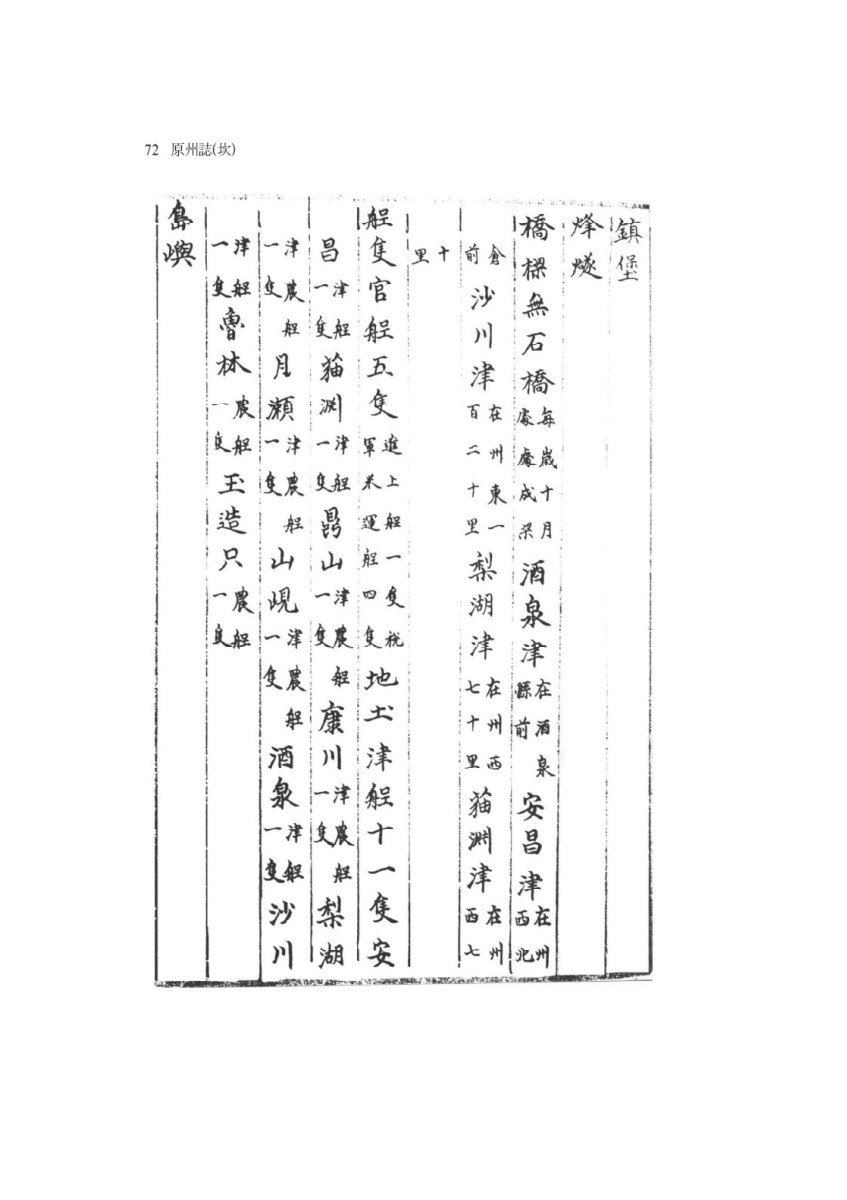 72 原州誌(坎)
鎮堡
烽燧
橋樑無石橋每歲十月處處成梁酒泉津在酒泉縣前安昌津在州西北
倉前沙川津在州東一百二十里梨湖津在州西七十里猫渊津在州西七
十里
舡隻官舡五隻進上舡一隻稅軍米運舡四隻地土津舡十一隻安
昌津舡一隻猫渊津舡一隻鼎山津農舡一隻康川津農舡一隻梨湖
津農舡一隻月瀬津農舡一隻山峴津農舡一隻酒泉津舡一隻沙川
津舡一隻魯林農舡一隻玉造只農舡一隻
島嶼